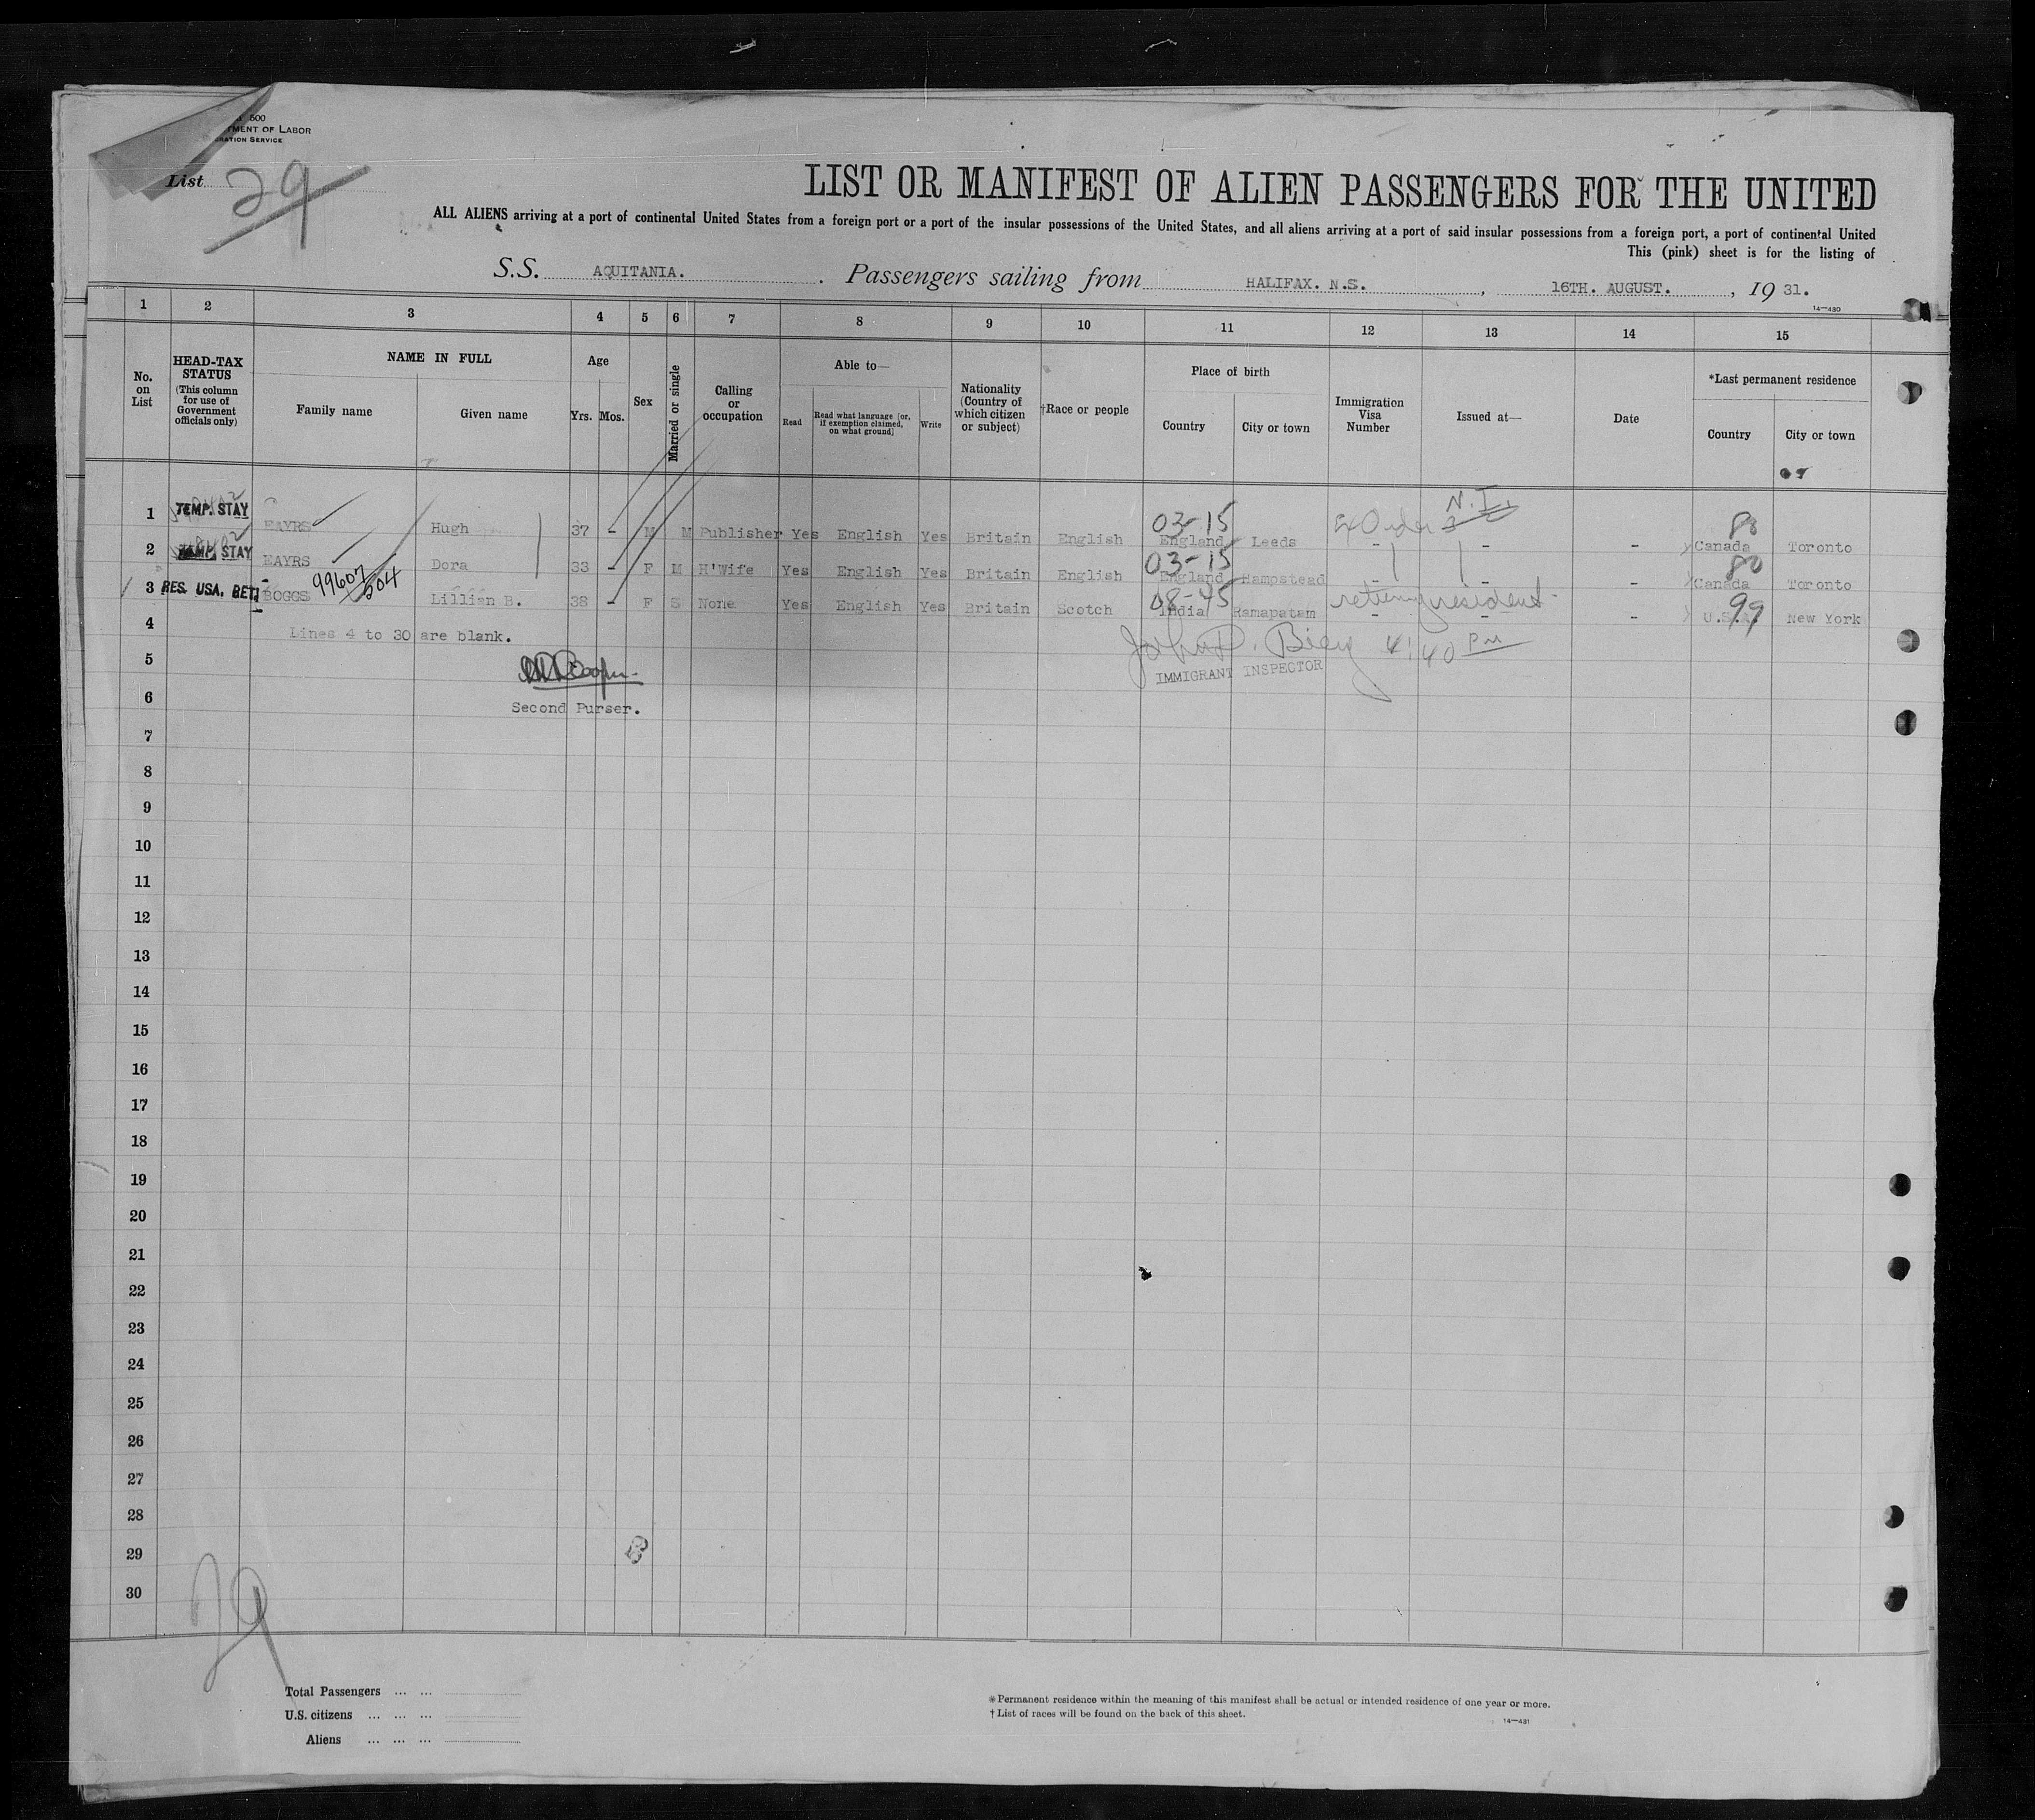 500
TMENT OF LABOR
RATION SERVICE
List 29
LIST OR MANIFEST OF ALIEN PASSENGERS FOR THE UNITED
ALL ALIENS arriving at a port of continental United States from a foreign port or a port of the insular possessions of the United States, and all aliens arriving at a port of said insular possessions from a foreign port, a port of continental United
This (pink) sheet is for the listing of
S.S. AQUITANIA. Passengers sailing from HALIFAX. N.S., 16TH. AUGUST., 1931.
14—430
1 2 3 4 5 6 7 8 9 10 11 12 13 14 15
No. on List
HEAD-TAX STATUS (This column for use of Government officials only)
NAME IN FULL
Family name
Given name
Age
Yrs. Mos.
Sex
Married or single
Calling or occupation
Able to—
Read
Read what language [or, if exemption claimed, on what ground]
Write
Nationality (Country of which citizen or subject)
†Race or people
Place of birth
Country
City or town
Immigration Visa Number
Issued at—
Date
*Last permanent residence
Country
City or town
03-15 N.I. 80
1 TEMP. STAY EAYRS Hugh 37 - M M Publisher Yes English Yes Britain English England Leeds - - - Canada Toronto
03-15 80
2 TEMP. STAY EAYRS Dora 33 - F M H'Wife Yes English Yes Britain English England Hampstead - - - Canada Toronto
99607/504 08-45 resident 99
3 RES. USA. RET. BOGGS Lillian B. 38 - F S None Yes English Yes Britain Scotch India Ramapatam - - - U.S.A. New York
4 Lines 4 to 30 are blank.
John D. 4:40 PM
5 Cooper IMMIGRANT INSPECTOR
6 Second Purser.
7
8
9
10
11
12
13
14
15
16
17
18
19
20
21
22
23
24
25
26
27
28
29
30
29
Total Passengers ... ...
U.S. citizens ... ... ...
Aliens ... ... ...
*Permanent residence within the meaning of this manifest shall be actual or intended residence of one year or more.
†List of races will be found on the back of this sheet.
14—431